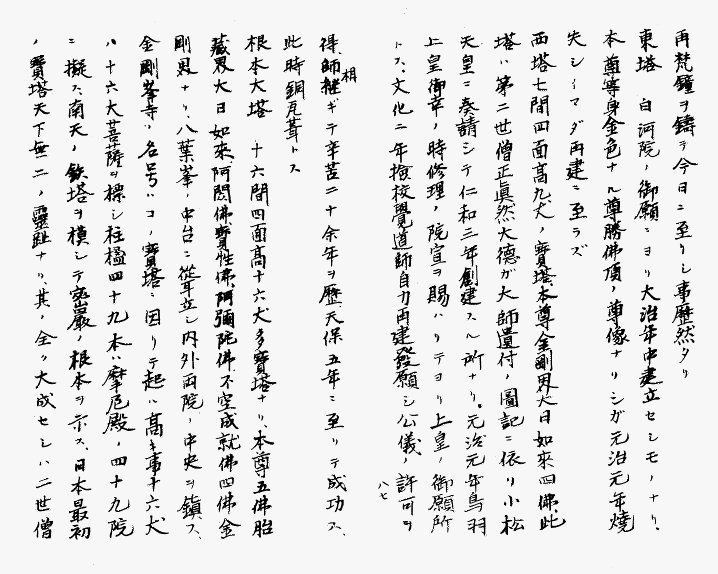 再梵鐘ヲ鑄テ今日ニ至リシ事歴然タリ
東塔　白河院ノ御願ニヨリ大治年中建立セシモノナリ、
本尊等身金色ナル尊勝佛頂ノ尊像ナリシガ元治元年燒
失シイマダ再建ニ至ラズ
西塔七間四面高九丈ノ寶塔本尊金剛界大日如來四佛、此
塔ハ第二世僧正眞然大德ガ大師遺付ノ圖記ニ依リ小松
天皇ニ奏請シテ仁和三年創建スル所ナリ。元治元年鳥羽
上皇御幸ノ時修理ノ院宣ヲ賜ハリテヨリ上皇ノ御願所
トス、文化二年撿校覺道師自力再建發願シ公儀ノ許可ヲ
八七
得、師相継ギテ辛苦二十余年ヲ歷、天保五年ニ至リテ成功ス、
此時銅瓦葺トス
根本大塔　十六間四面高十六丈多寶塔ナリ、本尊五佛胎
藏界大日如來、阿閦佛寶性佛、阿彌陀佛不空成就佛四佛金
剛界ナリ、八葉峯ノ中台ニ聳立シ内外両院ノ中央ヲ鎮ス、
金剛峯寺ノ名号ハコノ寶塔ニ因リテ起ル高キ事十六丈
ハ十六大菩薩ヲ標シ柱楹四十九本ハ摩尼殿ノ四十九院
ニ擬ス南天ノ鉄塔ヲ模シテ密嚴ノ根本ヲ示ス、日本最初
ノ寶塔天下無二ノ靈趾ナリ、其ノ全ク大成セシハ二世僧